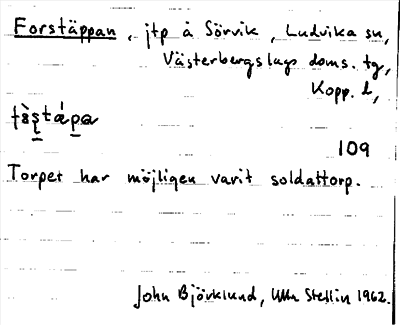 Forstäppan, jtp å Sörvik, Ludvika sn,
Västerbergslags doms. tg,
Kopp. l,
109
Torpet har möjligen varit soldattorp.
John Björklund, Ulla Stellin 1962.